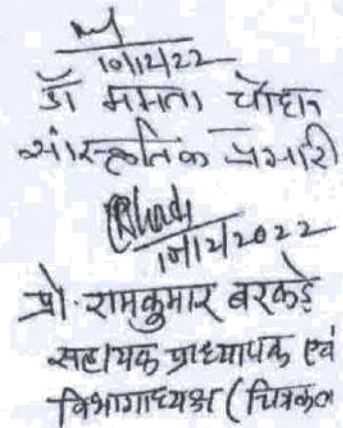 10/12/22
डॉ ममता चौहान
सांस्कृतिक प्रभारी
10/12/2022
प्रो. रामकुमार बरकड़े
सहायक प्राध्यापक एवं
विभागाध्यक्ष (चित्रकला